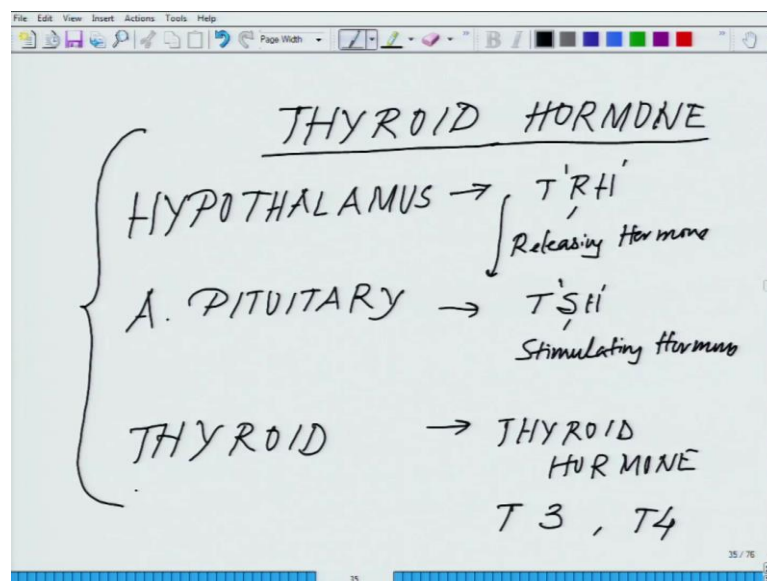 File Edit View Insert Actions Tools Help
Page Width
B I
THYROID HORMONE
HYPOTHALAMUS → T'RH'
Releasing Hormone
A. PITUITARY → T'SH'
Stimulating Hormone
THYROID → THYROID
HORMONE
T3, T4
35/76
35